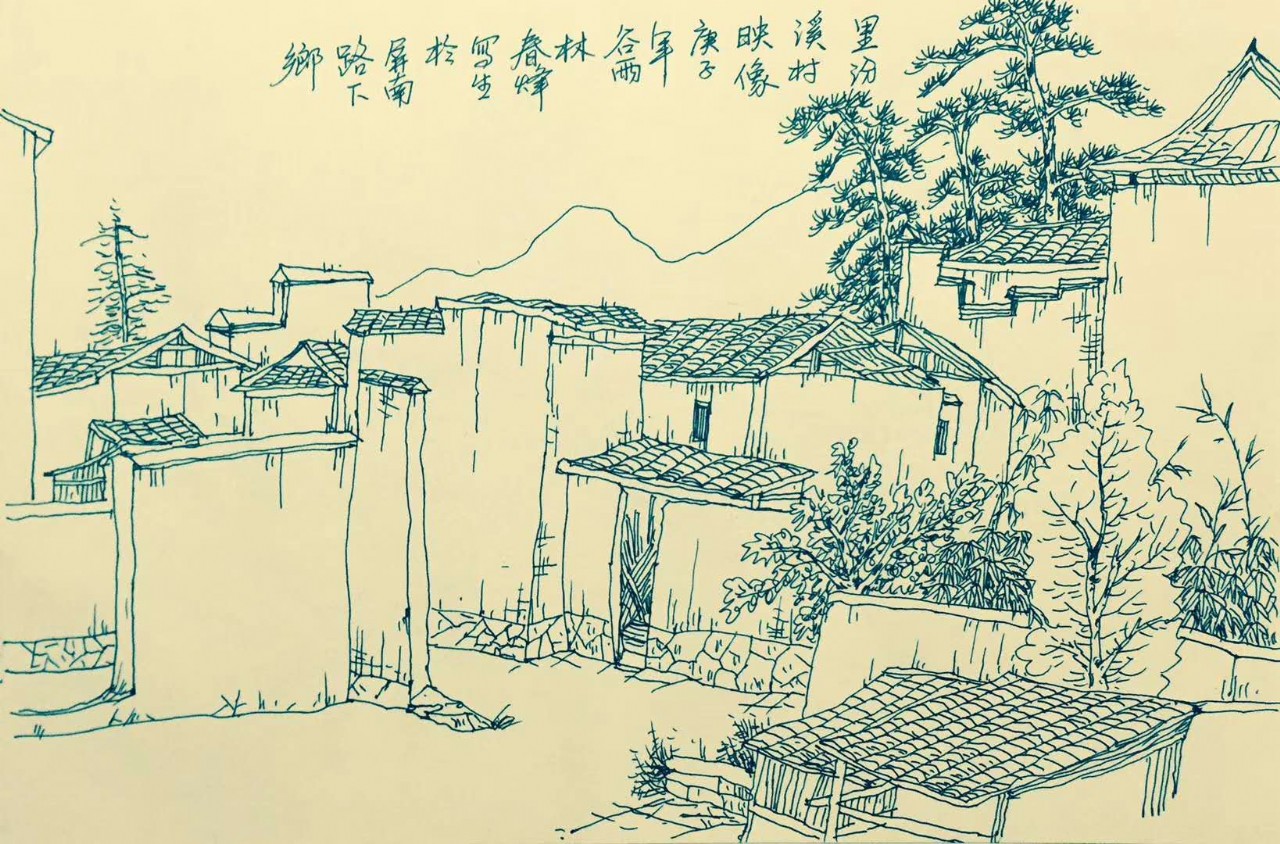 里汾
溪村
映像
庚子
年
谷雨
林
春烽
写生
於
屏南
路下
鄉